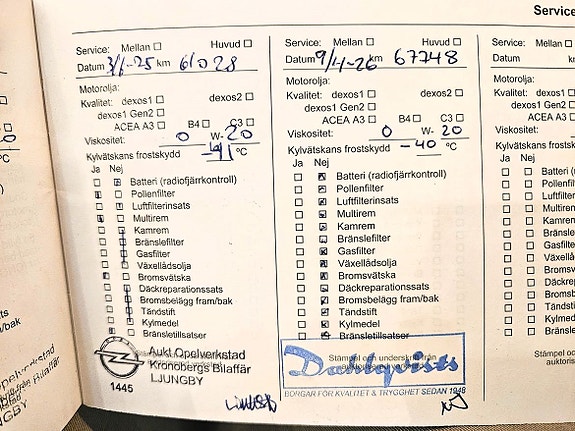 Service
Service: Mellan Huvud
Datum 3/1-25 km 61028
Motorolja:
Kvalitet: dexos1 dexos2
dexos1 Gen2
ACEA A3 B4 C3
Viskositet: 0 W-20
Kylvätskans frostskydd -41 °C
Ja Nej
Batteri (radiofjärrkontroll)
Pollenfilter
Luftfilterinsats
Multirem
Kamrem
Bränslefilter
Gasfilter
Växellådsolja
Bromsvätska
Däckreparationssats
Bromsbelägg fram/bak
Tändstift
Kylmedel
Bränsletillsats
Aukt Opelverkstad
Kronobergs Bilaffär
LJUNGBY
1445
Service: Mellan Huvud
Datum 9/4-26 km 67748
Motorolja:
Kvalitet: dexos1 dexos2
dexos1 Gen2
ACEA A3 B4 C3
Viskositet: 0 W-20
Kylvätskans frostskydd -40 °C
Ja Nej
Batteri (radiofjärrkontroll)
Pollenfilter
Luftfilterinsats
Multirem
Kamrem
Bränslefilter
Gasfilter
Växellådsolja
Bromsvätska
Däckreparationssats
Bromsbelägg fram/bak
Tändstift
Kylmedel
Bränsletillsatser
Stämpel och underskrift från
Dahlqvists
BORGAR FÖR KVALITET & TRYGGHET SEDAN 1948
Service: Mellan
Datum
Motorolja:
Kvalitet: dexos1
dexos1 Gen2
ACEA A3
Viskositet:
Kylvätskans frostskydd
Ja Nej
Batteri (radiof
Pollenfilter
Luftfilterins
Multirem
Kamrem
Bränslefil
Gasfilter
Växellåd
Bromsv
Däckre
Broms
Tändst
Kylme
Bräns
Stämpel oc
auktoris